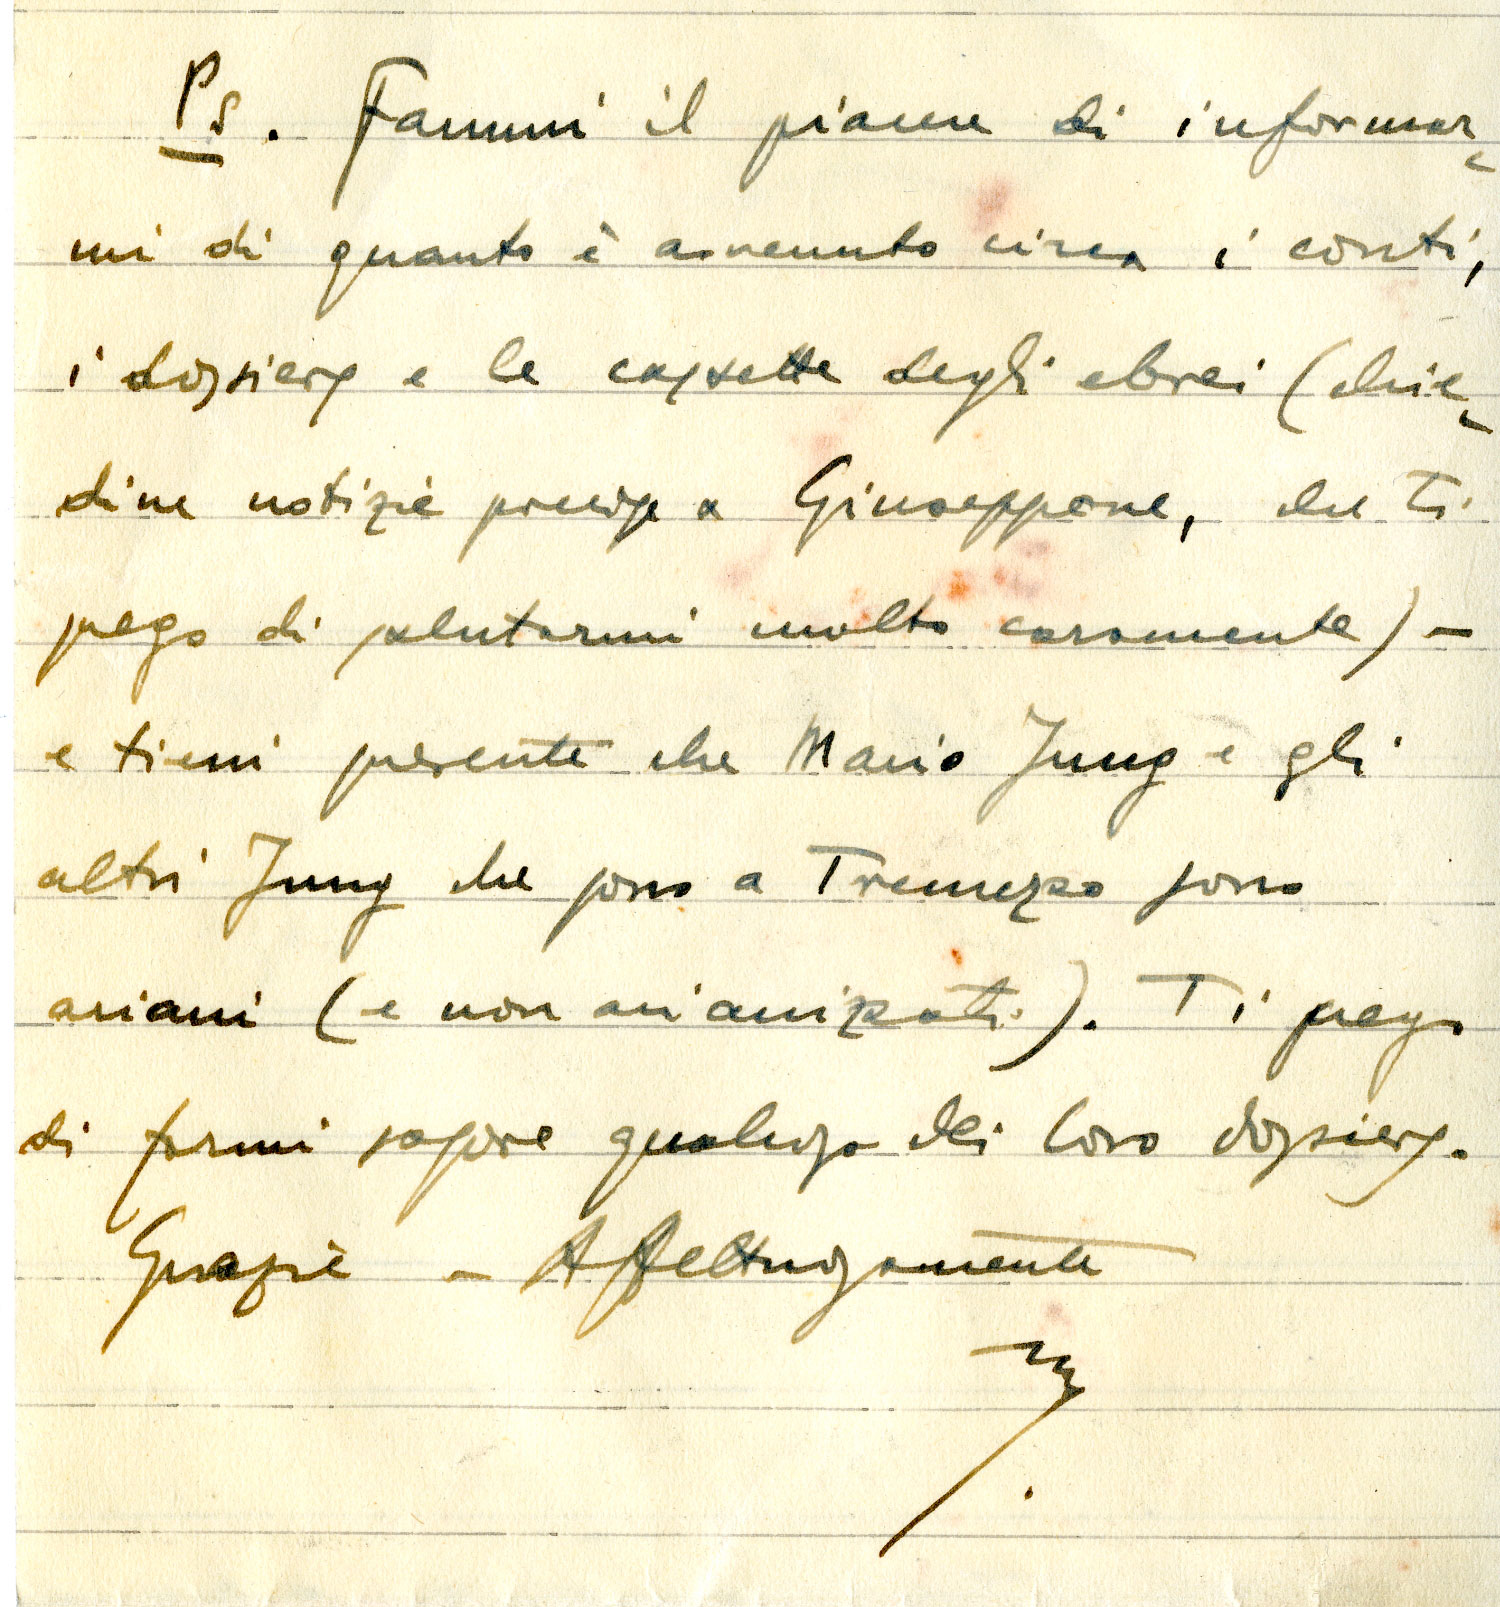 Ps. Fammi il piacere di informar-
mi di quanto è avvenuto circa i conti,
i dossiers e le cassette degli ebrei (chie-
dine notizie precise a Giuseppone, che ti
prego di salutarmi molto caramente) –
e tieni presente che Mario Jung e gli
altri Jung che sono a Tremezzo sono
ariani (e non arianizzati). Ti prego
di farmi sapere qualcosa dei loro dossiers.
Grazie – Affettuosamente